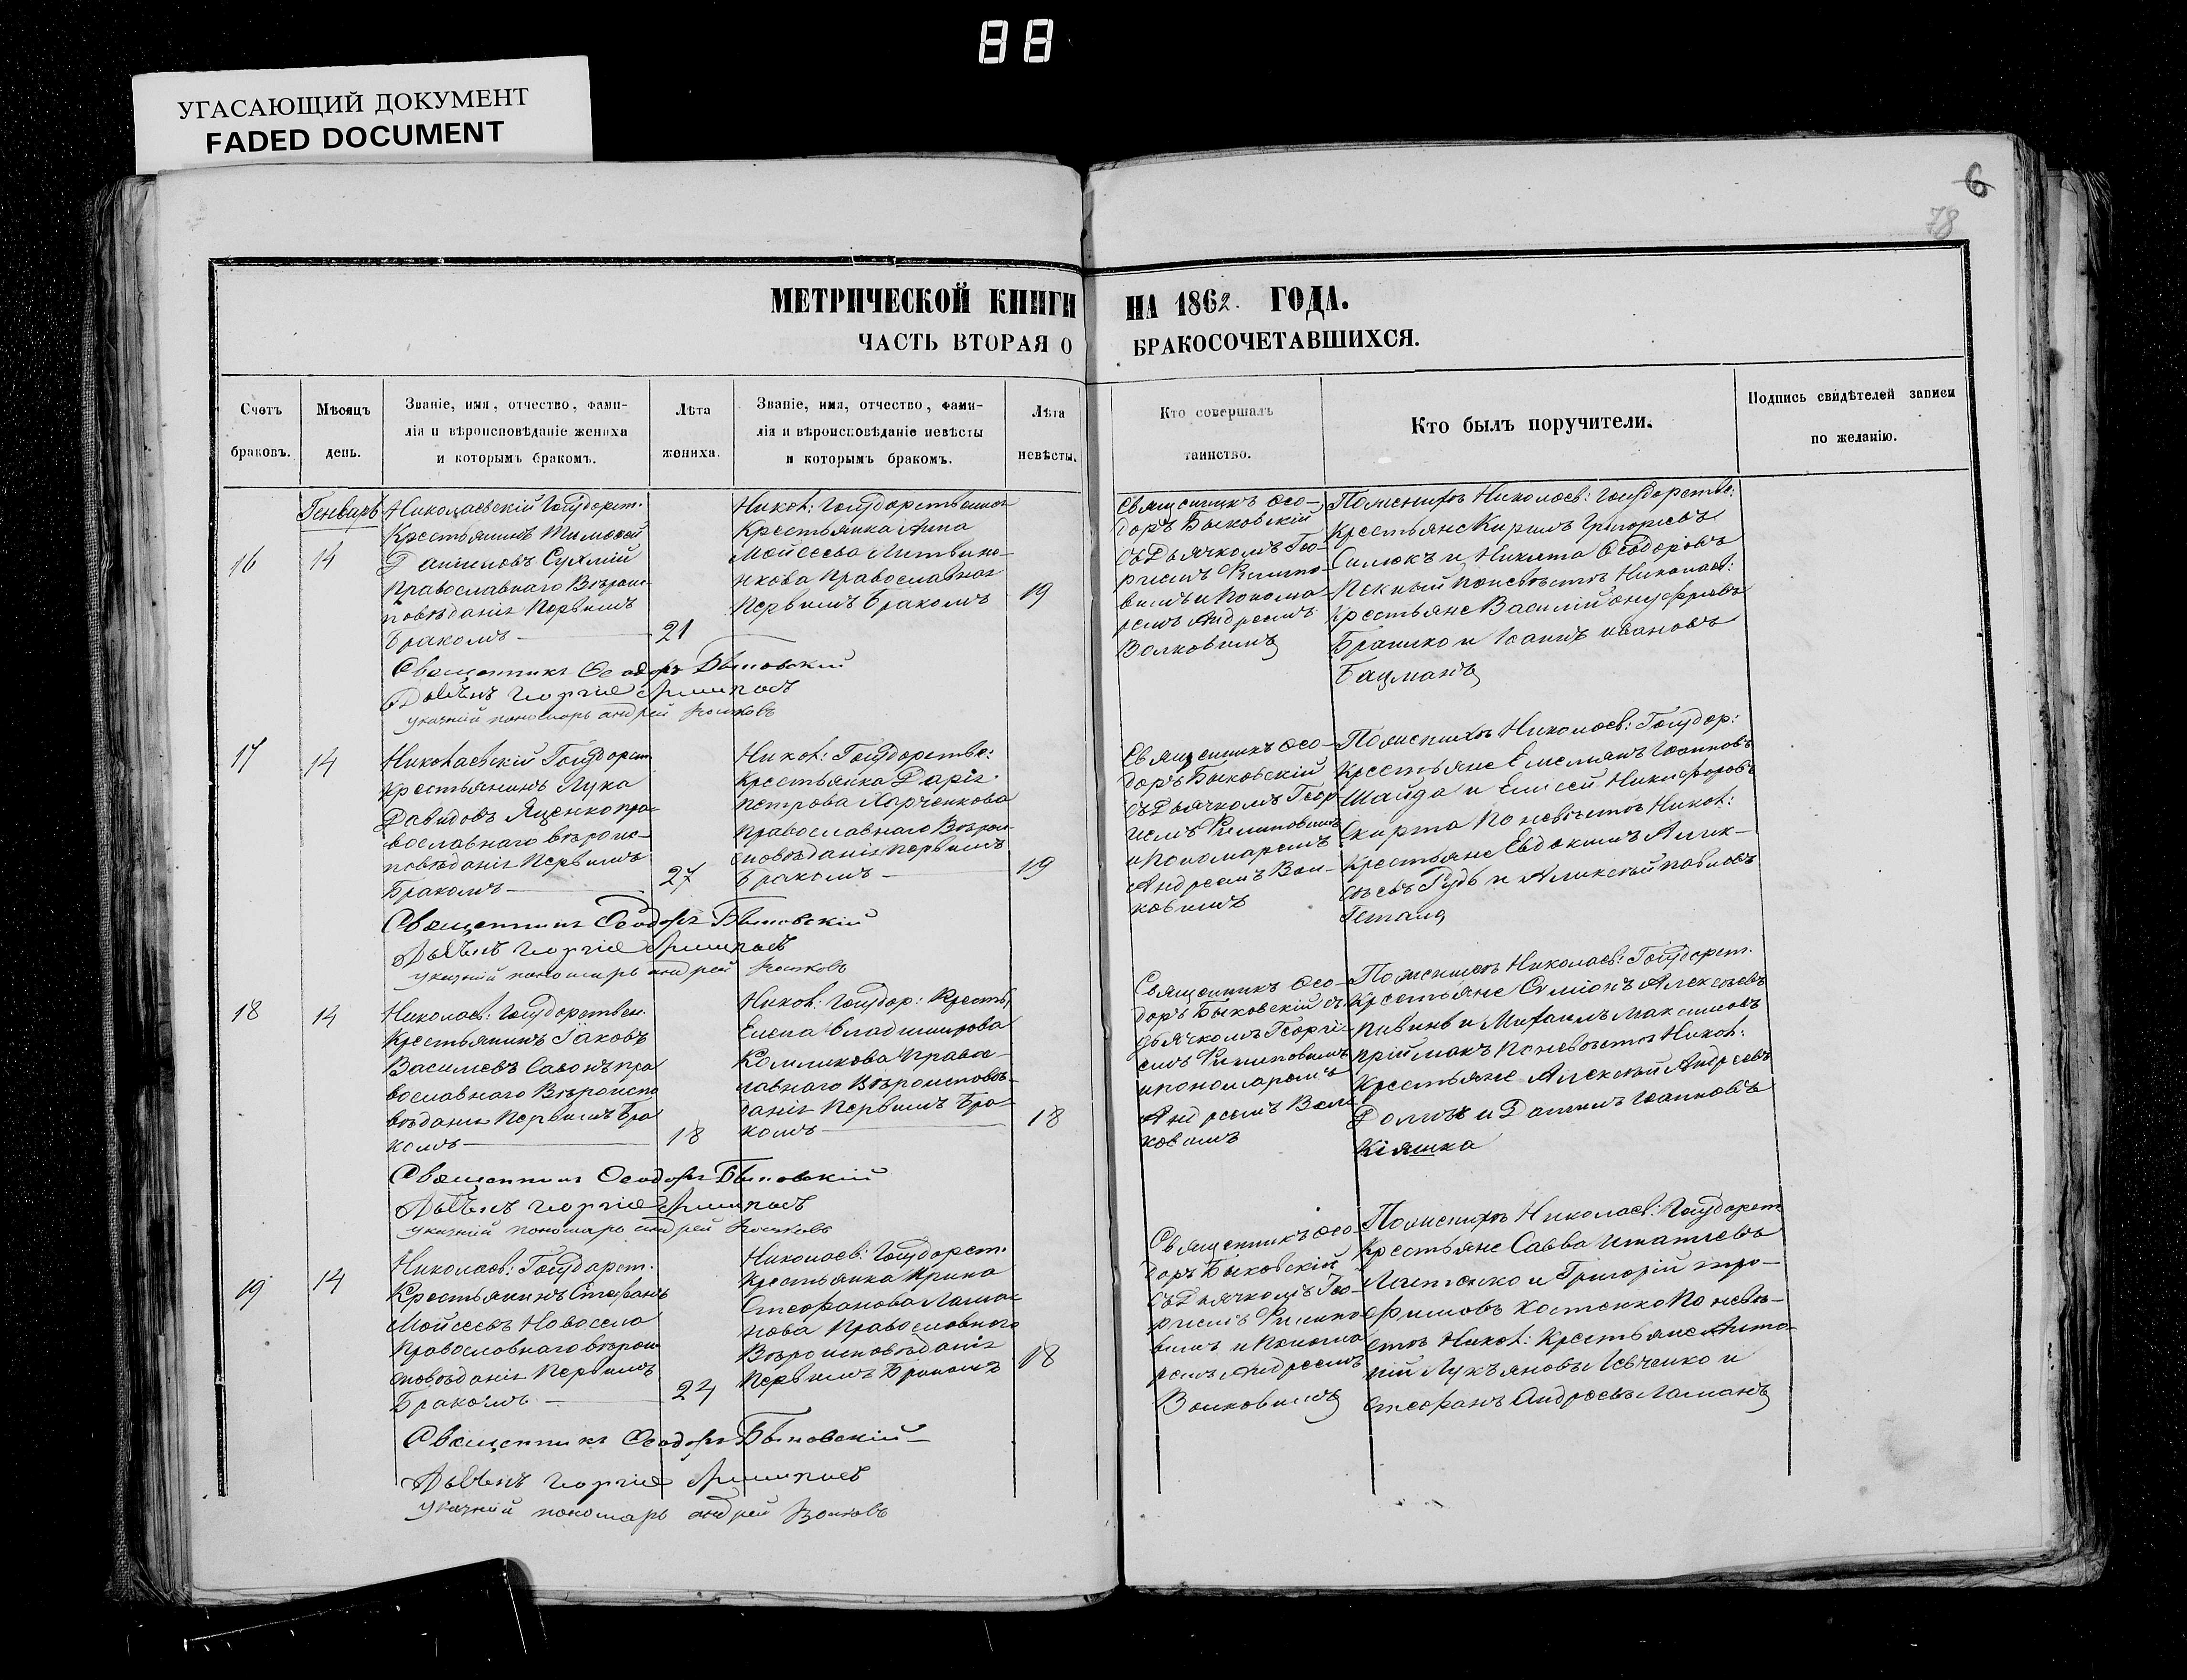 88
УГАСАЮЩИЙ ДОКУМЕНТ
FADED DOCUMENT
6
78
МЕТРИЧЕСКОЙ КНИГИ НА 1862. ГОДА.
ЧАСТЬ ВТОРАЯ О БРАКОСОЧЕТАВШИХСЯ.
Счетъ
браковъ.
Мѣсяцъ
день.
Званіе, имя, отчество, фами-
лія и вѣроисповѣданіе жениха
и которымъ бракомъ.
Лѣта
жениха.
Званіе, имя, отчество, фами-
лія и вѣроисповѣданіе невѣсты
и которымъ бракомъ.
Лѣта
невѣсты.
Кто совершалъ
таинство.
Кто былъ поручители.
Подпись свидѣтелей записи
по желанію.
Генварь
16
14
Николаевскій Государст.
Крестьянинъ Тимофей
Даниловъ Сухлій
Православнаго Вѣроис-
повѣданія Первымъ
Бракомъ
21
Никол: Государственная
Крестьянка Анна
Мойсеева Литвино-
ва Православная
Первымъ Бракомъ
19
Священникъ Ѳео-
доръ Быковскій
съ Дьячкомъ Гео-
ргіемъ
вымъ и Понома-
ремъ Андреемъ
Волковымъ
По женихѣ Николаев: Государстве:
Крестьяне Кирилъ Григорьевъ
Силюкъ и Никита Ѳеодоровъ
по невѣстѣ Николаев:
Крестьяне Василій Онуфріевъ
Брашко и Іоаннъ Ивановъ
Бацманъ
Священникъ Ѳеодоръ Быковскій
Дьячекъ Георгій
указный пономарь андрей Волковъ
17
14
Николаевскій Государст.
крестьянинъ Лука
Давидовъ Яценко пра-
вославнаго вѣроис-
повѣданія Первымъ
Бракомъ
27
Никол: Государстве:
Крестьянка Дарія
Петрова Харченкова
православнаго Вѣрои-
сповѣданія первымъ
бракомъ
19
Священникъ Ѳео-
доръ Быковскій
съ Дьячкомъ Геор-
гіемъ
и Пономаремъ
Андреемъ Вол-
ковымъ
По женихѣ Николаев: Государ:
Крестьяне Емеліянъ Іоанновъ
Шайда и Елисей Никифоровъ
Скирта По невѣстѣ Никол:
Крестьяне Евдокимъ Алек-
сѣевъ Гудь и Алексѣй Павловъ
Священникъ Ѳеодоръ Быковскій
Дьячекъ Георгій
указный пономарь андрей Волковъ
18
14
Николаев: Государствен.
Крестьянинъ Іаковъ
Васильевъ пра
вославнаго Вѣроиспо
вѣданія Первымъ Бра
комъ
18
Никол: Государ: Кресть
Елена Владимирова
Правос-
лавнаго Вѣроисповѣ-
данія Первымъ Бра-
комъ
18
Священникъ Ѳео-
доръ Быковскій съ
дьячкомъ Георгі-
емъ
и пономаремъ
Андреемъ Вол-
ковымъ
По женихѣ Николаев: Государст.
Крестьяне Симіонъ Алексѣевъ
и Михаилъ Максимовъ
Пріймакъ По невѣстѣ Никол:
Крестьяне Алексѣй Андреевъ
и Данилъ Іоанновъ
Кіяшка
Священникъ Ѳеодоръ Быковскій
Дьячекъ Георгій
указный пономарь андрей Волковъ
19
14
Николаев: Государст.
Крестьянинъ Стефанъ
Мойсеевъ Новосела
Православнаго вѣрои-
сповѣданія Первымъ
Бракомъ
24
Николаев: Государст.
крестьянка Ирина
Стефанова Лама-
нова Православнаго
Вѣроисповѣданія
Первымъ Бракомъ
18
Священникъ Ѳео
доръ Быковскій
съ Дьячкомъ Гео-
ргіемъ
вымъ и Понома
ремъ Андреемъ
Волковымъ
По женихѣ Николаев: Государст
Крестьяне Савва Игнатіевъ
и Григорій Тро-
фимовъ Костенко По невѣ-
стѣ Никол: Крестьяне Анто-
ній Лукъяновъ Левченко и
Стефанъ Андреевъ Ламанъ
Священникъ Ѳеодоръ Быковскій
Дьячекъ Георгій
указный пономарь андрей Волковъ